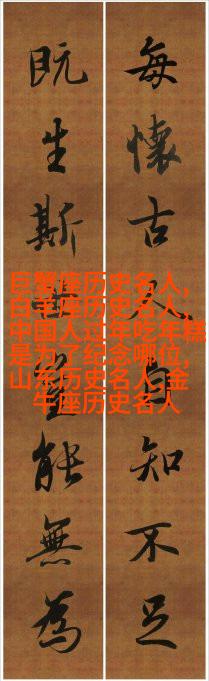 每懷古人自知不足
既生斯能無為
巨蟹座历史名人,
白羊座历史名人,
中国人过年吃年糕
是为了纪念哪位,
山东历史名人,金
牛座历史名人